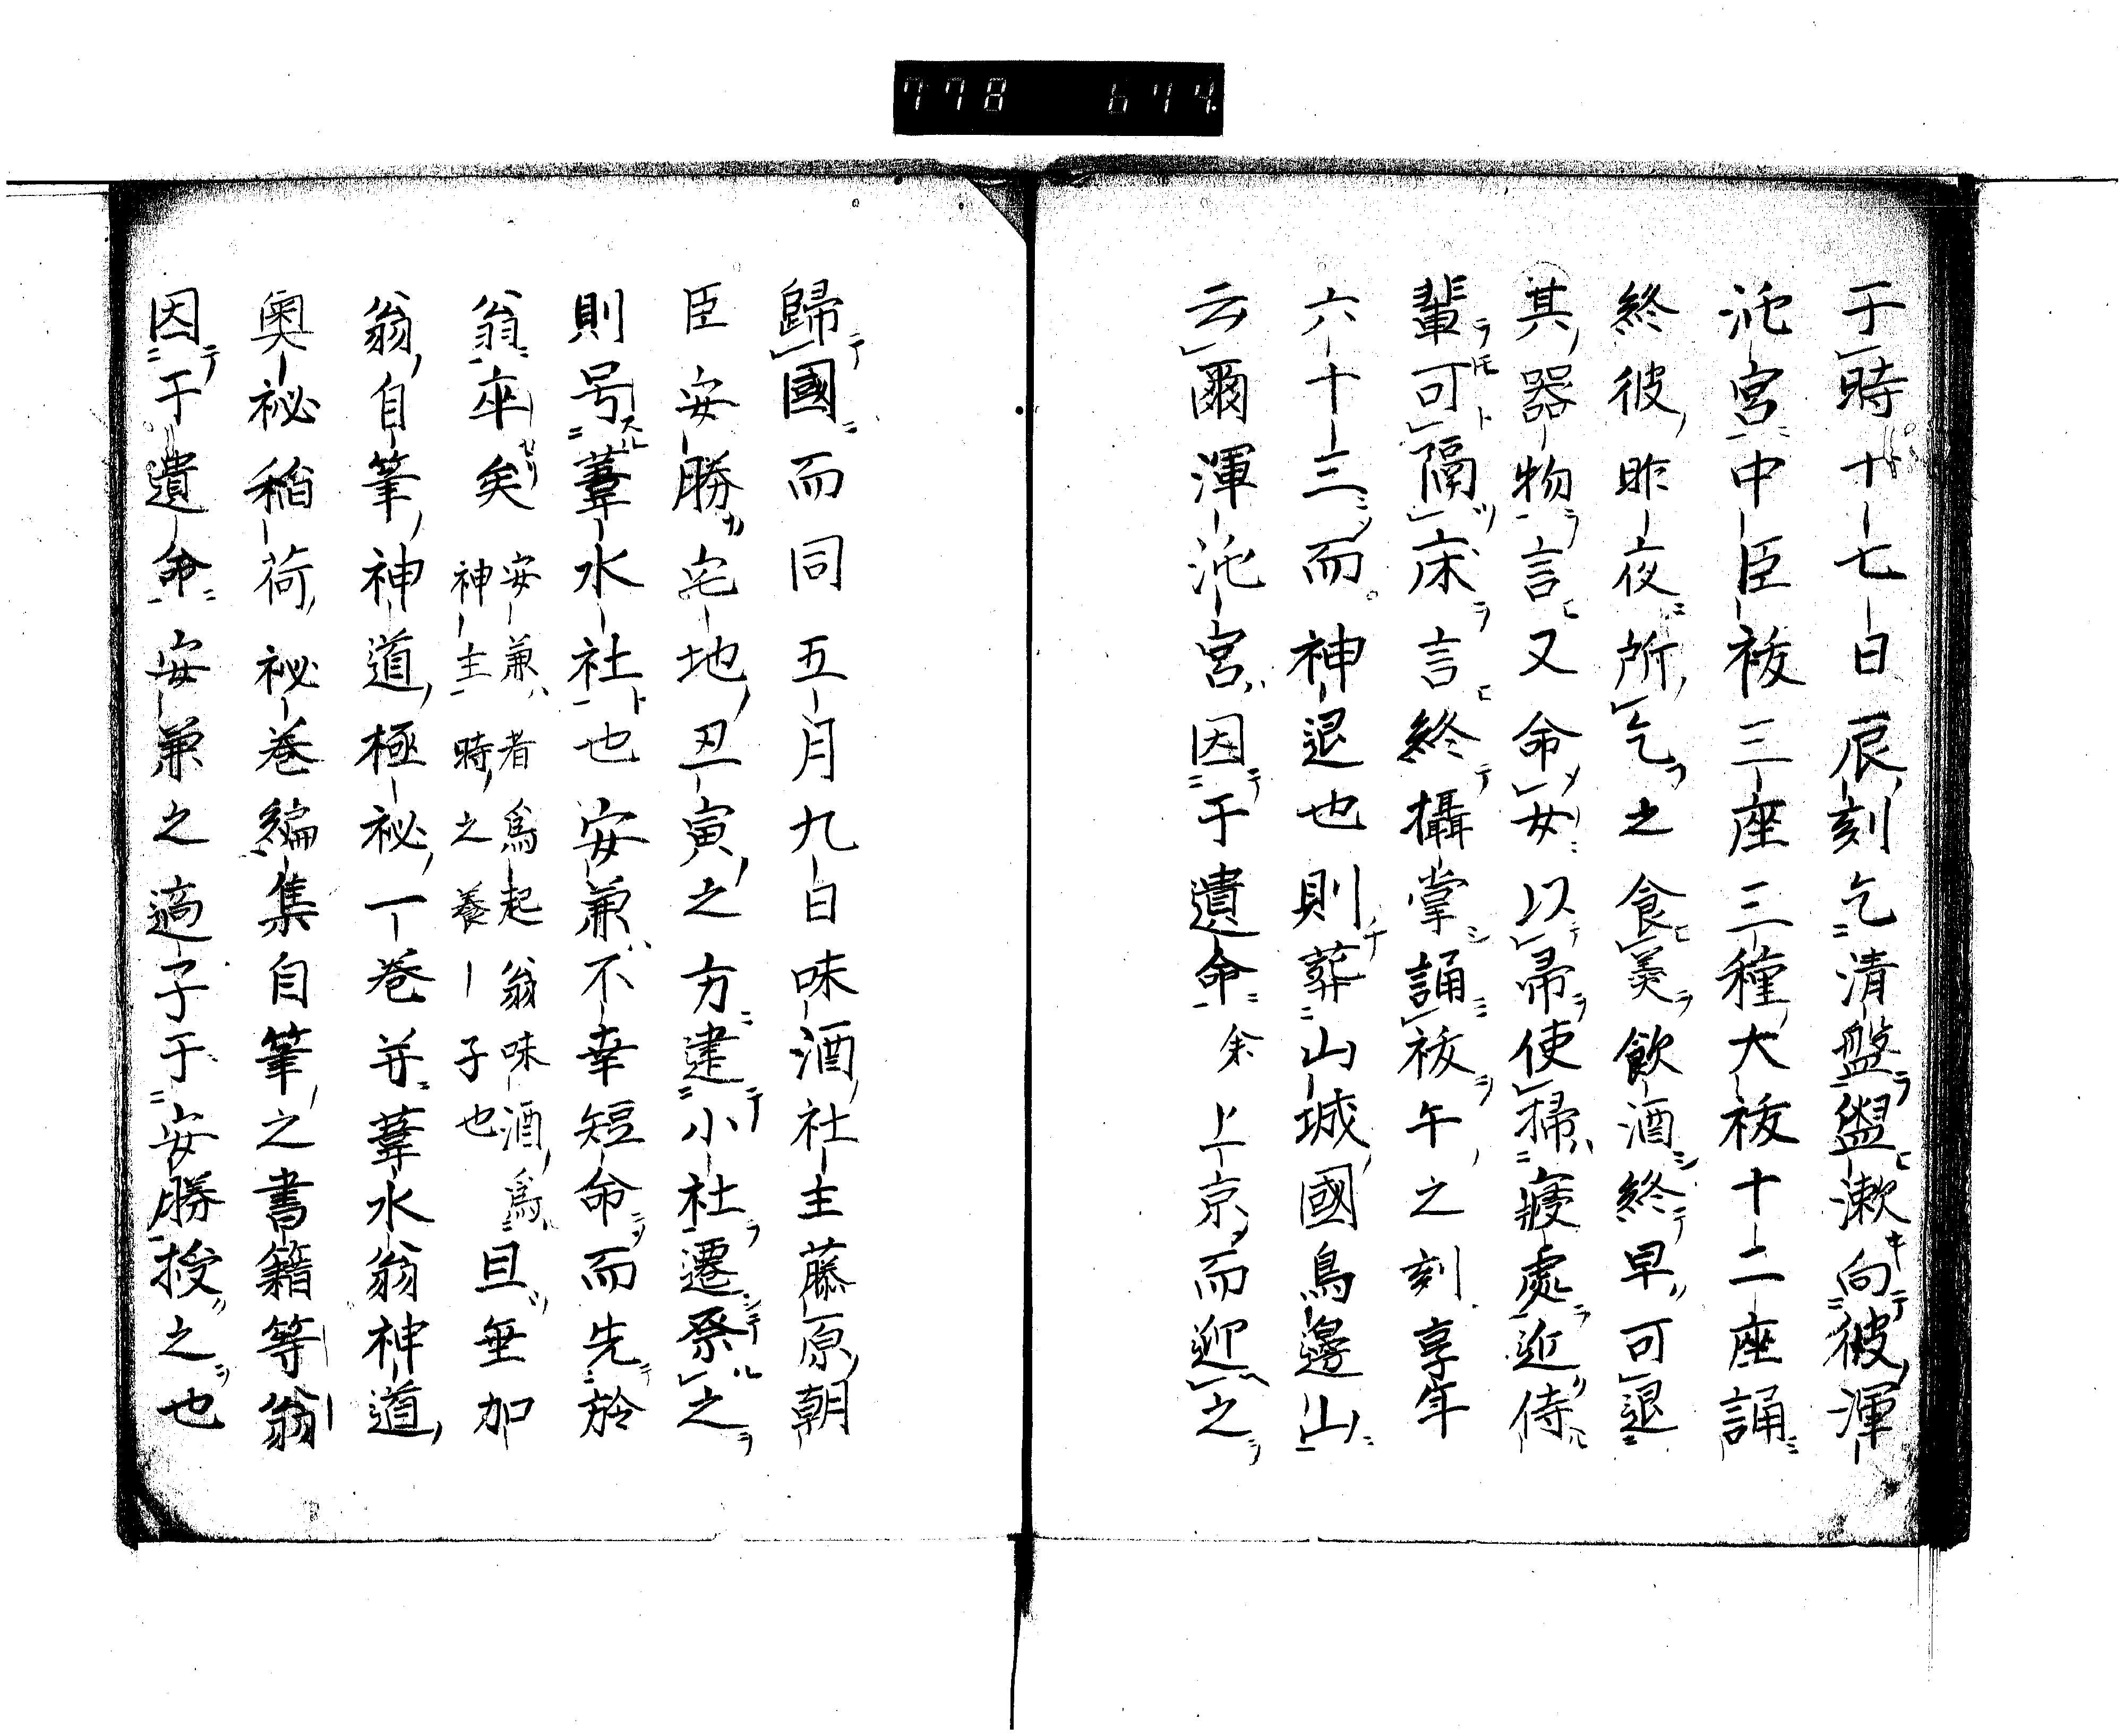 778 644
于時十七日辰刻乞清盤盥漱向彼渾
沌宮中臣祓三座三種大祓十二座誦
終彼昨夜所乞之食羹飲酒終早可退
其器物言又命女以帚使掃寢處近侍
輩可隔床言終攝掌誦祓午之刻享年
六十三而神退也則葬山城國鳥邊山
云爾渾沌宮因于遺命余上京而迎之
歸國而同五月九日味酒社主藤原朝
臣安勝宅地丑寅之方建小社遷祭之
則号葦水社也安兼不幸短命而先於
翁卒矣安兼者爲起翁味酒爲
神主時之養子也且垂加
翁自筆神道極祕一巻并葦水翁神道
奥祕稲荷祕巻編集自筆之書籍等翁
因于遺命安兼之適子于安勝授之也